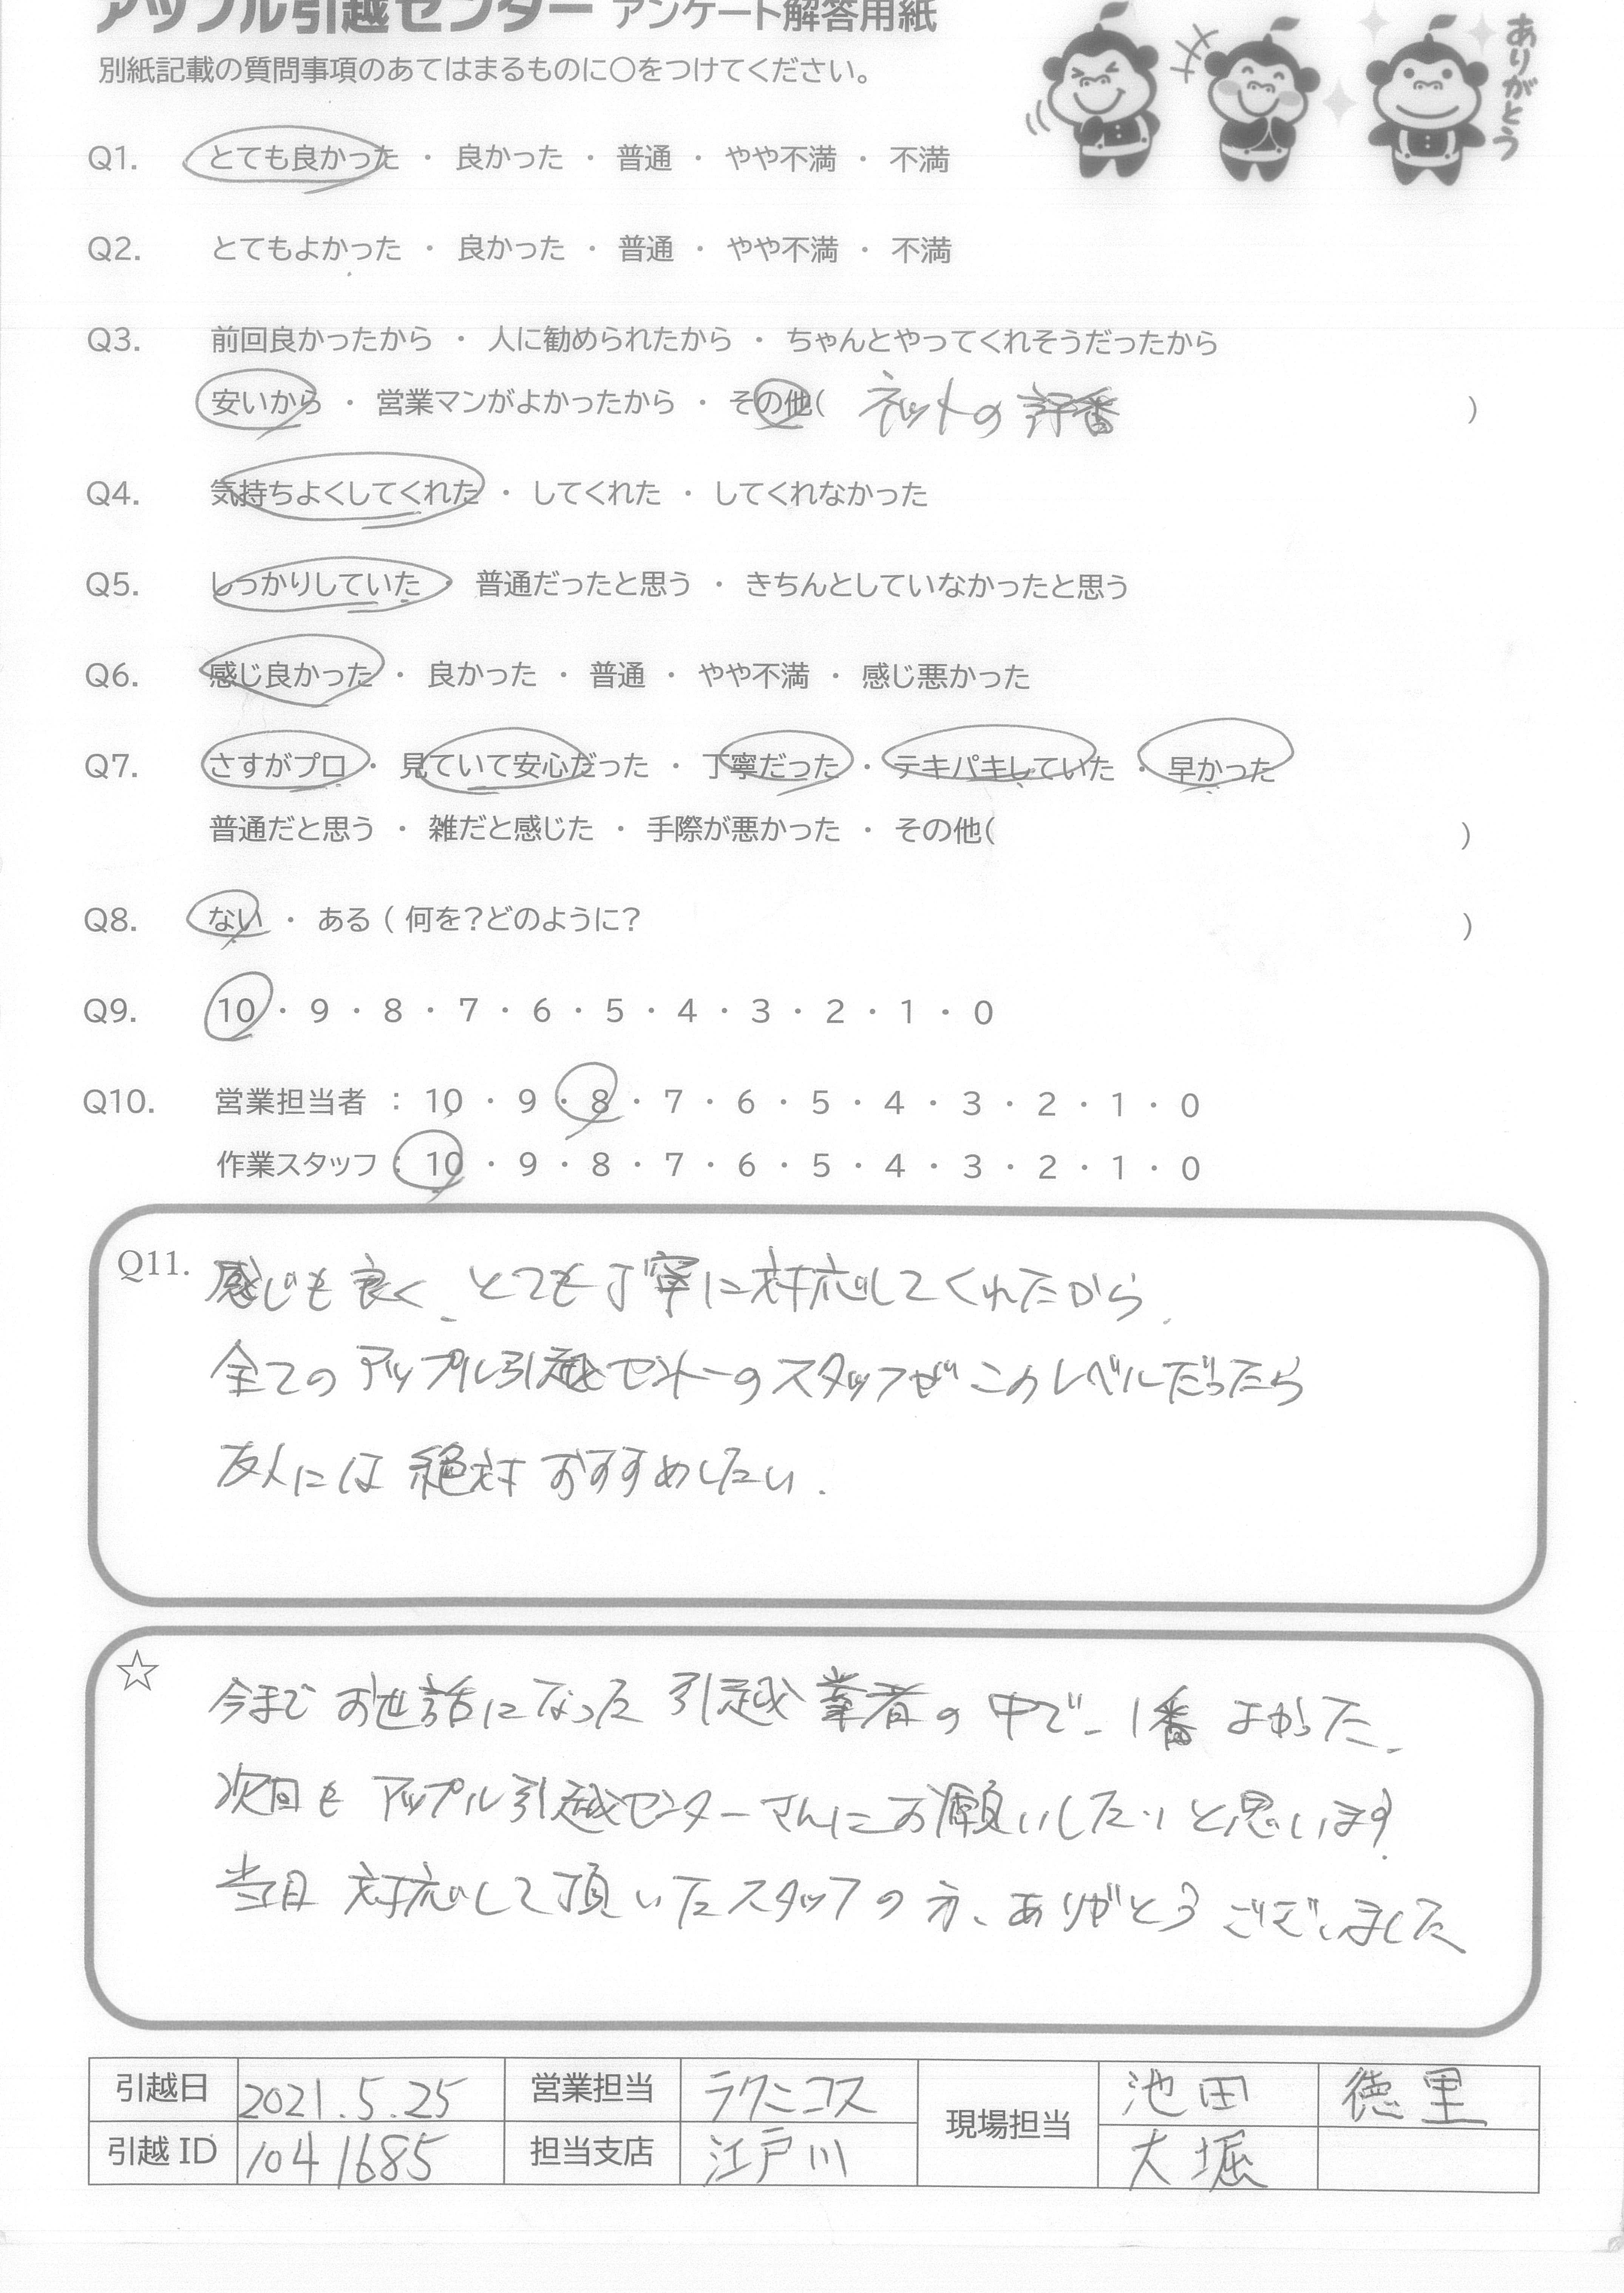 アップル引越センター アンケート解答用紙
別紙記載の質問事項のあてはまるものに○をつけてください。
ありがとう
Q1. とても良かった ・ 良かった ・ 普通 ・ やや不満 ・ 不満
Q2. とてもよかった ・ 良かった ・ 普通 ・ やや不満 ・ 不満
Q3. 前回良かったから ・ 人に勧められたから ・ ちゃんとやってくれそうだったから
安いから ・ 営業マンがよかったから ・ その他( ネットの評番 )
Q4. 気持ちよくしてくれた ・ してくれた ・ してくれなかった
Q5. しっかりしていた ・ 普通だったと思う ・ きちんとしていなかったと思う
Q6. 感じ良かった ・ 良かった ・ 普通 ・ やや不満 ・ 感じ悪かった
Q7. さすがプロ ・ 見ていて安心だった ・ 丁寧だった ・ テキパキしていた ・ 早かった
普通だと思う ・ 雑だと感じた ・ 手際が悪かった ・ その他( )
Q8. ない ・ ある ( 何を?どのように? )
Q9. 10 ・ 9 ・ 8 ・ 7 ・ 6 ・ 5 ・ 4 ・ 3 ・ 2 ・ 1 ・ 0
Q10. 営業担当者 : 10 ・ 9 ・ 8 ・ 7 ・ 6 ・ 5 ・ 4 ・ 3 ・ 2 ・ 1 ・ 0
作業スタッフ : 10 ・ 9 ・ 8 ・ 7 ・ 6 ・ 5 ・ 4 ・ 3 ・ 2 ・ 1 ・ 0
Q11. 感じも良く、とても丁寧に対応してくれたから、
全てのアップル引越センターのスタッフがこのレベルだったら
友人には絶対おすすめしたい.
☆ 今までお世話になった引越業者の中で、1番よかった、
次回もアップル引越センターさんにお願いしたいと思います.
当日対応して頂いたスタッフの方、ありがとうございました
引越日 2021.5.25 営業担当 ラクニコス 現場担当 池田 徳里
引越ID 1041685 担当支店 江戸川 大堀